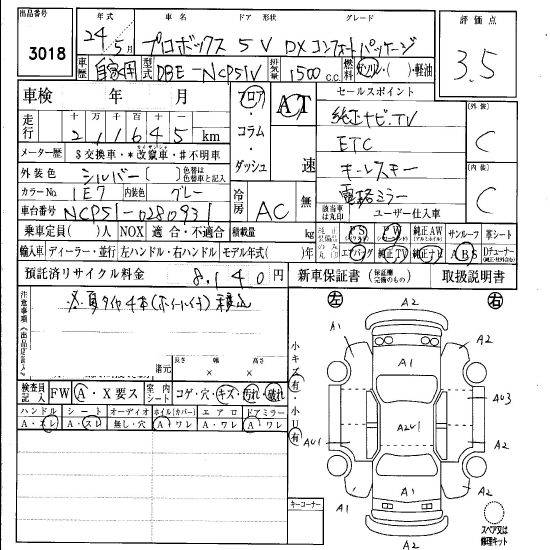 出品番号 年式 車名 ドア 形状 グレード
3018 24年 5月 プロボックス 5V DXコンフォートパッケージ
評価点
3.5
車歴 自家用 型式 DBE-NCP51V 排気量 1500 c.c. 燃料 ガソリン・( )・軽油
車検 年 月
フロア・コラム・ダッシュ
AT 速
セールスポイント
純正ナビ・TV
ETC
キーレスキー
電格ミラー
外装
C
内装
C
走行 十 万 千 百 十 一
211645 km
メーター歴 $交換車・*改竄車・#不明車
外装色 シルバー ( ) 色替は色替車と記入
カラーNo 1E7 内装色 グレー
車台番号 NCP51-0280931
冷房 AC
無
該当車は丸印 ユーザー仕入車
乗車定員 ( )人 NOX 適合・不適合 積載量 kg
純正装備品は丸印 PS PW 純正AW サンルーフ 革シート
輸入車 ディーラー・並行 左ハンドル・右ハンドル モデル年式( )年 エアバッグ 純正TV 純正ナビ ABS Dチューナー
預託済リサイクル料金 8,140円 新車保証書 (保証継可能のもの) 取扱説明書
注意事項
夏タイヤ4本(ホイール付)積込
諸元 長さ 幅 高さ
× ×
検査員記入 FW A・X要ス 室内シート コゲ・穴・キズ・汚れ・破れ
ハンドル シート オーディオ ホイル(カバー) エアロ ドアミラー
A・スレ A・スレ 無し・穴 A・ワレ A・ワレ A・ワレ
小キズ有・小U有
キーコーナー
左 右
A2
A1 A2
A1
AU3
A2U1
AU1 A2
A1
A2 A2
A2
スペア又は修理キット